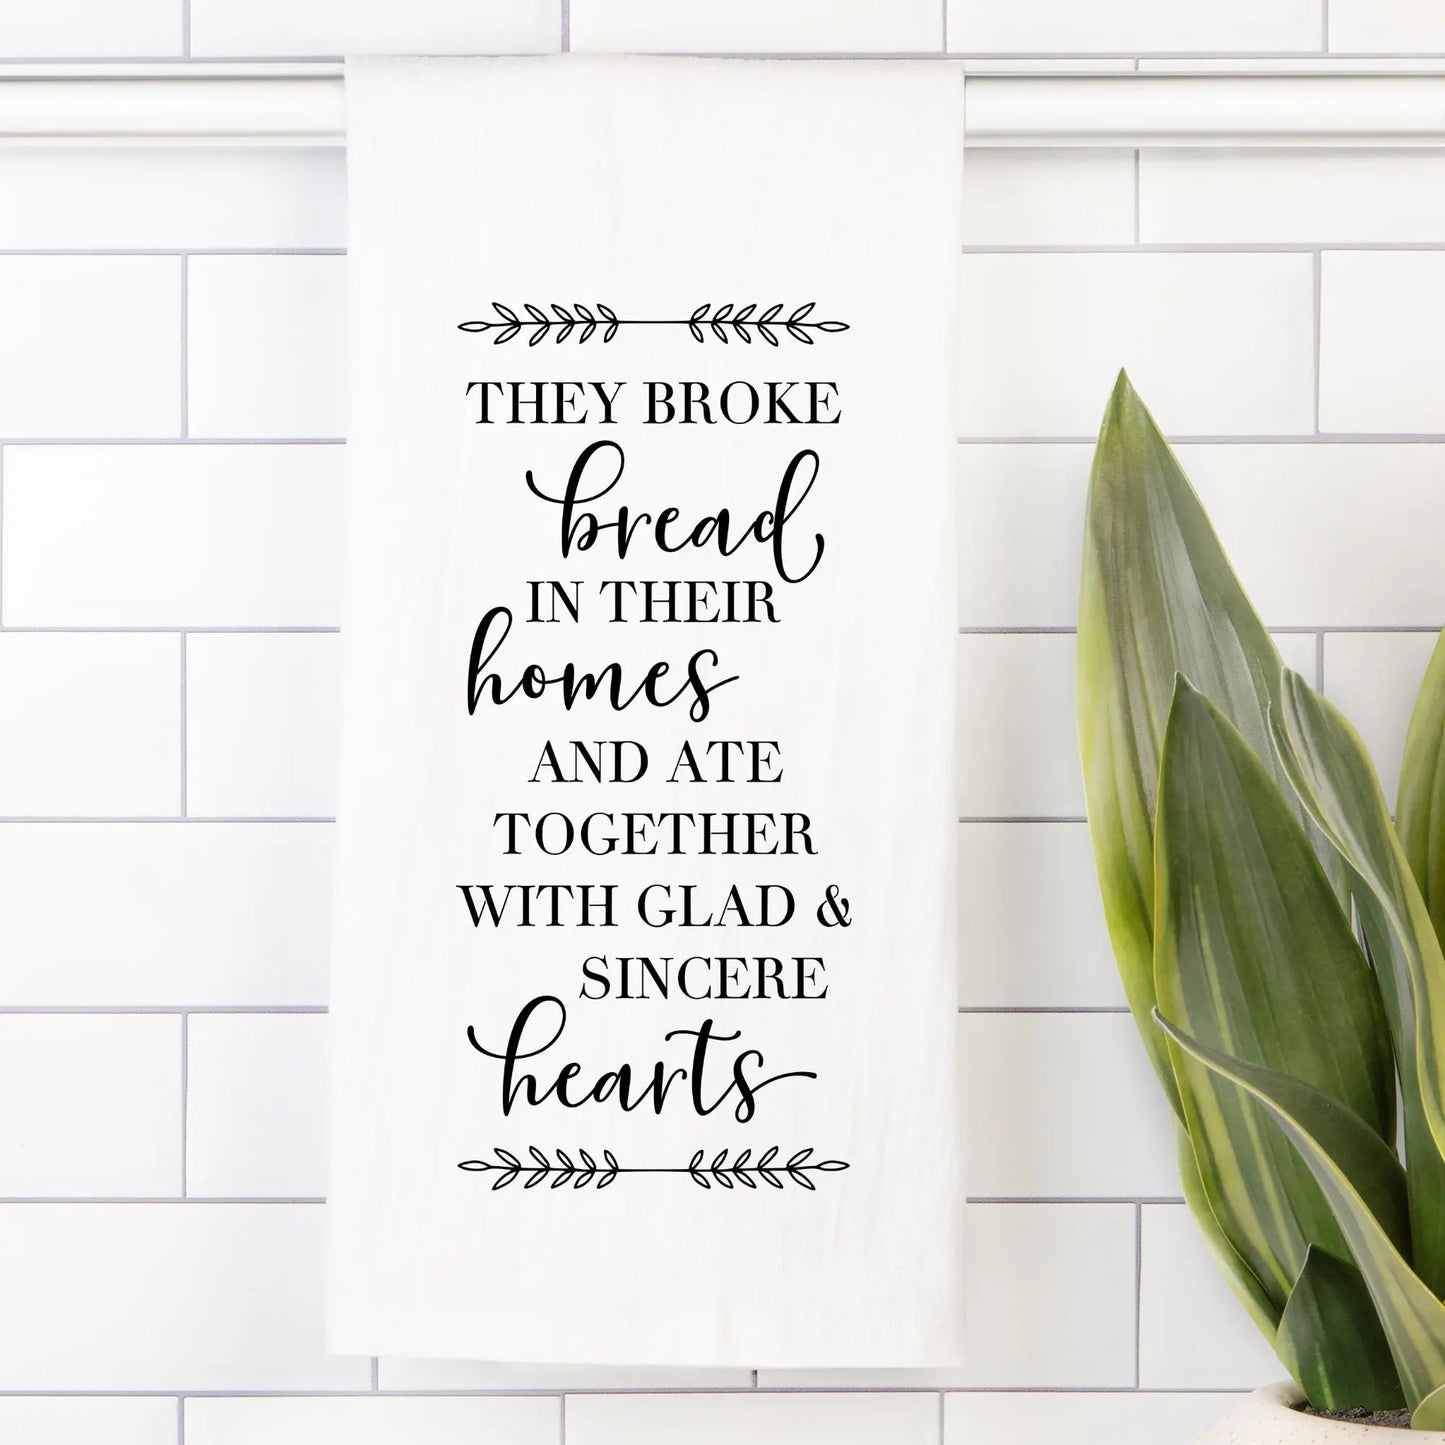 THEY BROKE
bread
IN THEIR
homes
AND ATE
TOGETHER
WITH GLAD &
SINCERE
hearts